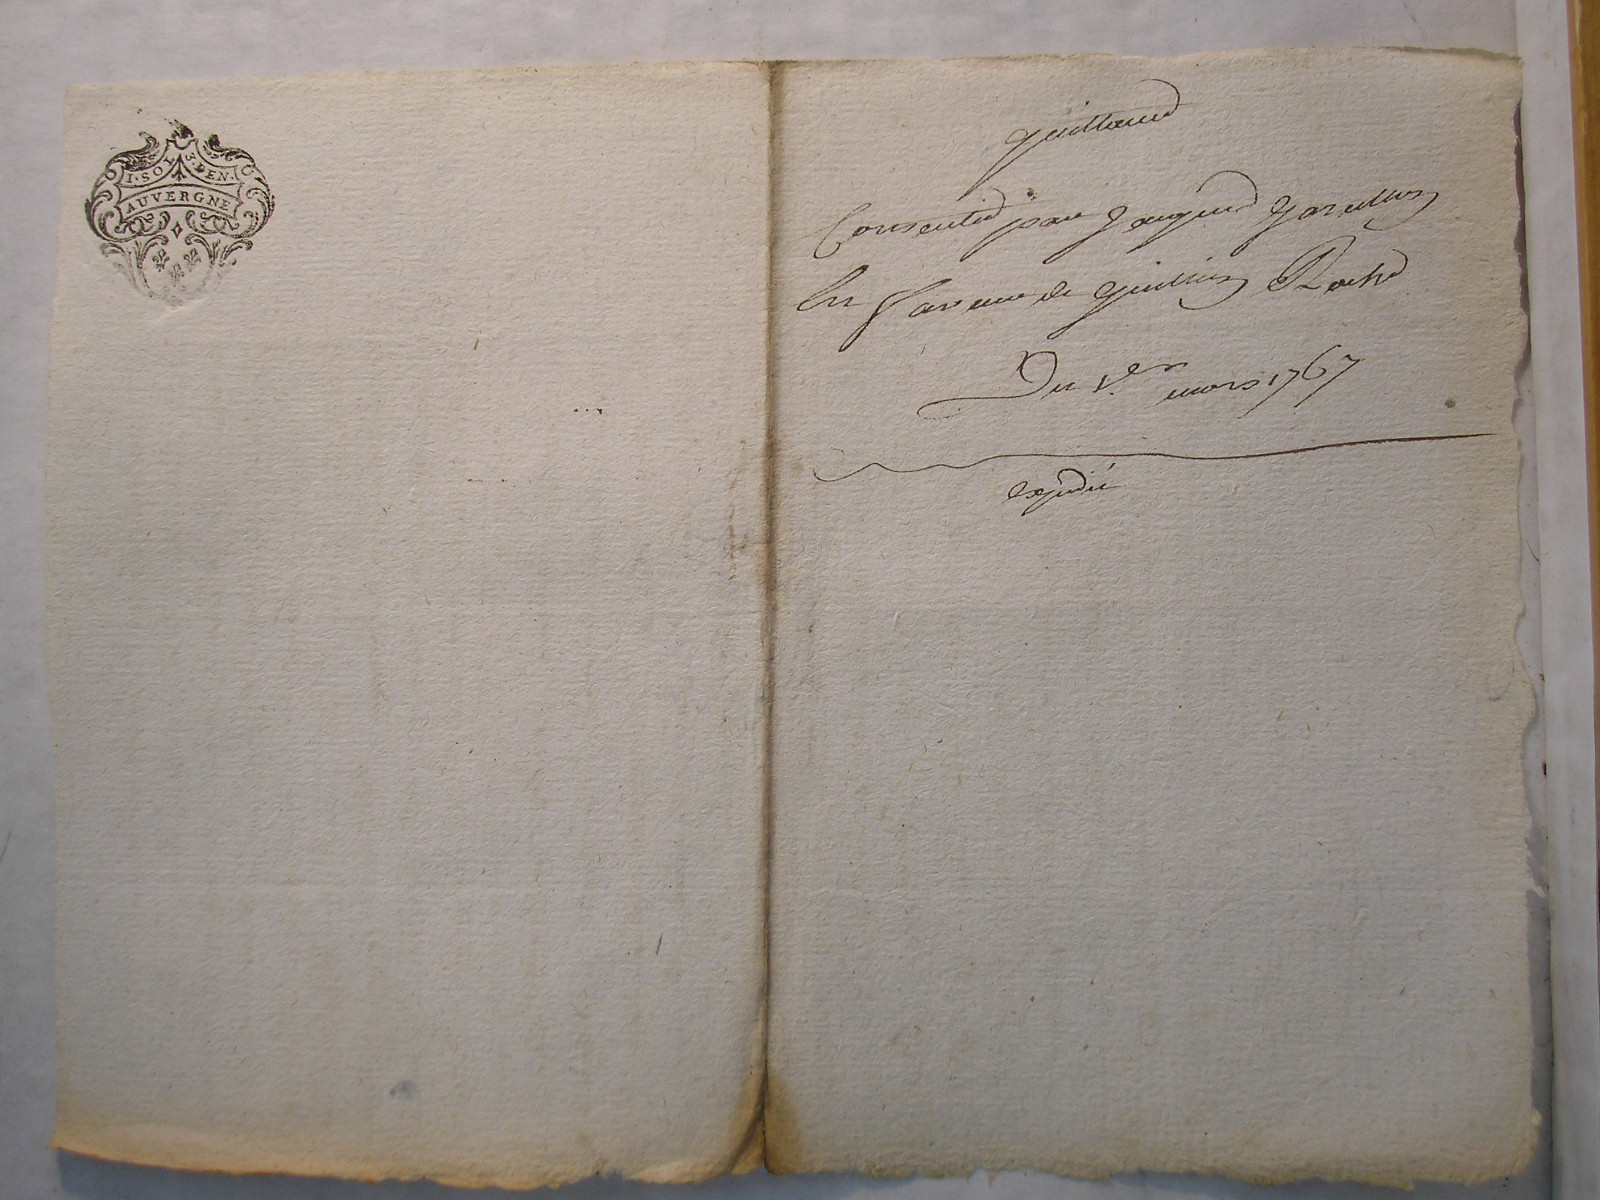 1. SOL 3. DEN.
AUVERGNE
quittance
Consentie par Jacques
En faveur de Roche
Du 1.er mars 1767
expédié